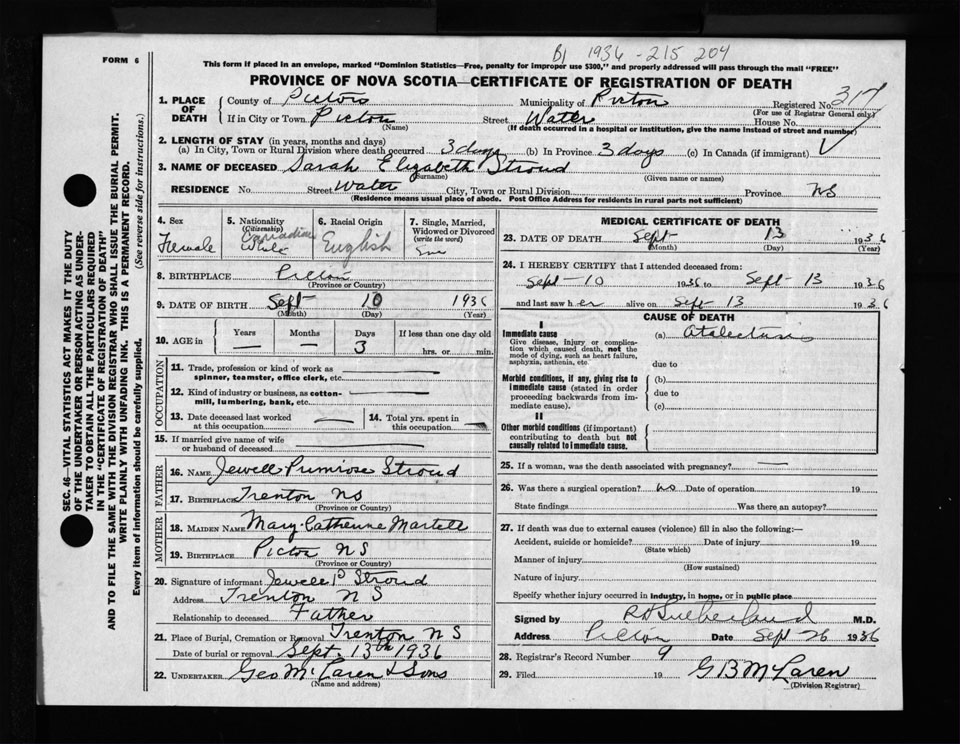 FORM 6
BJ 1936 - 215 204
This form if placed in an envelope, marked "Dominion Statistics—Free, penalty for improper use $300," and properly addressed will pass through the mail "FREE"
PROVINCE OF NOVA SCOTIA—CERTIFICATE OF REGISTRATION OF DEATH
1. PLACE OF DEATH County of Pictou Municipality of Pictou Registered No. 317
(For use of Registrar General only)
If in City or Town Picton Street Water House No.
(Name) (If death occurred in a hospital or institution, give the name instead of street and number)
2. LENGTH OF STAY (in years, months and days)
(a) In City, Town or Rural Division where death occurred 3 days (b) In Province 3 days (c) In Canada (if immigrant)
3. NAME OF DECEASED Sarah Elizabeth Stroud
(Surname) (Given name or names)
RESIDENCE No. Street Water City, Town or Rural Division Province NS
(Residence means usual place of abode. Post Office Address for residents in rural parts not sufficient)
4. Sex Female
5. Nationality (Citizenship) Canadian White
6. Racial Origin English
7. Single, Married, Widowed or Divorced (write the word)
8. BIRTHPLACE Picton
(Province or Country)
9. DATE OF BIRTH Sept 10 1936
(Month) (Day) (Year)
10. AGE in Years — Months — Days 3 If less than one day old hrs. or min.
OCCUPATION
11. Trade, profession or kind of work as spinner, teamster, office clerk, etc. —
12. Kind of industry or business, as cotton-mill, lumbering, bank, etc. —
13. Date deceased last worked at this occupation —
14. Total yrs. spent in this occupation —
15. If married give name of wife or husband of deceased —
FATHER
16. NAME Jewell Primrose Stroud
17. BIRTHPLACE Trenton NS
(Province or Country)
MOTHER
18. MAIDEN NAME Mary Catherine Martell
19. BIRTHPLACE Picton N S
(Province or Country)
20. Signature of informant Jewell P Stroud
Address Trenton N S
Relationship to deceased Father
21. Place of Burial, Cremation or Removal Trenton N S
Date of burial or removal Sept. 13th 1936
22. UNDERTAKER Geo McLaren & Sons
(Name and address)
MEDICAL CERTIFICATE OF DEATH
23. DATE OF DEATH Sept 13 1936
(Month) (Day) (Year)
24. I HEREBY CERTIFY that I attended deceased from:
Sept - 10 1936 to Sept - 13 1936
and last saw her alive on Sept 13 1936
CAUSE OF DEATH
I
Immediate cause
Give disease, injury or complication which caused death, not the mode of dying, such as heart failure, asphyxia, asthenia, etc.
(a) Atalectasis
due to
Morbid conditions, if any, giving rise to immediate cause (stated in order proceeding backwards from immediate cause).
(b)
due to
(c)
II
Other morbid conditions (if important) contributing to death but not causally related to immediate cause.
25. If a woman, was the death associated with pregnancy? —
26. Was there a surgical operation? no Date of operation 19
State findings Was there an autopsy?
27. If death was due to external causes (violence) fill in also the following:—
Accident, suicide or homicide? Date of injury 19
(State which)
Manner of injury
(How sustained)
Nature of injury
Specify whether injury occurred in industry, in home, or in public place
Signed by R H Sutherland M.D.
Address Picton Date Sept 26 1936
28. Registrar's Record Number 9
29. Filed 19 G B McLaren
(Division Registrar)
SEC. 46—VITAL STATISTICS ACT MAKES IT THE DUTY
OF THE UNDERTAKER OR PERSON ACTING AS UNDERTAKER TO OBTAIN ALL THE PARTICULARS REQUIRED
IN THE "CERTIFICATE OF REGISTRATION OF DEATH"
AND TO FILE THE SAME WITH THE DIVISION REGISTRAR WHO SHALL ISSUE THE BURIAL PERMIT.
WRITE PLAINLY WITH UNFADING INK. THIS IS A PERMANENT RECORD.
Every item of information should be carefully supplied. (See reverse side for instructions.)